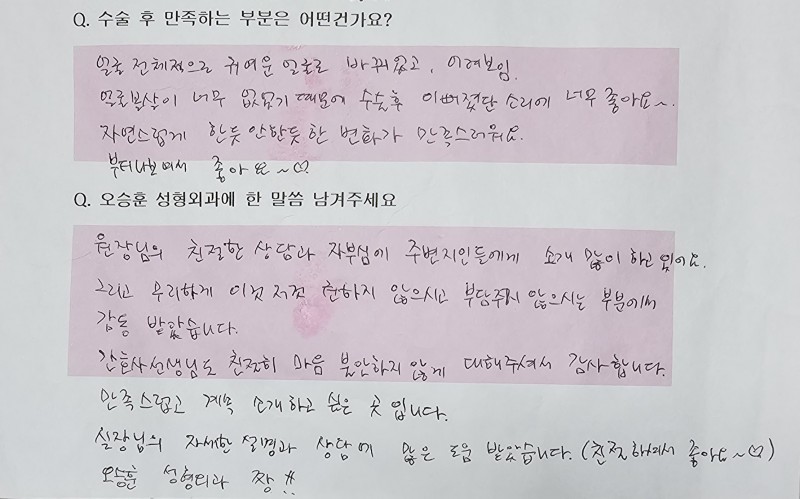 Q. 수술 후 만족하는 부분은 어떤건가요?
얼굴 전체적으로 귀여운 얼굴로 바뀌었고, 어려보임.
얼굴볼살이 너무 없었기 때문에 수술후 이뻐졌단 소리에 너무 좋아요~.
자연스럽게 한듯 안한듯 한 변화가 만족스러워요.
부티나보여서 좋아요~♡
Q. 오승훈 성형외과에 한 말씀 남겨주세요
원장님의 친절한 상담과 자부심에 주변지인들에게 소개 많이 하고 있어요.
그리고 무리하게 이것 저것 권하지 않으시고 부담주시 않으시는 부분에서
감동 받았습니다.
간호사선생님도 친절히 마음 불안하지 않게 대해주셔서 감사합니다.
만족스럽고 계속 소개하고 싶은 곳 입니다.
실장님의 자세한 설명과 상담에 많은 도움 받았습니다. (친절하셔서 좋아요~♡)
오승훈 성형외과 짱!!